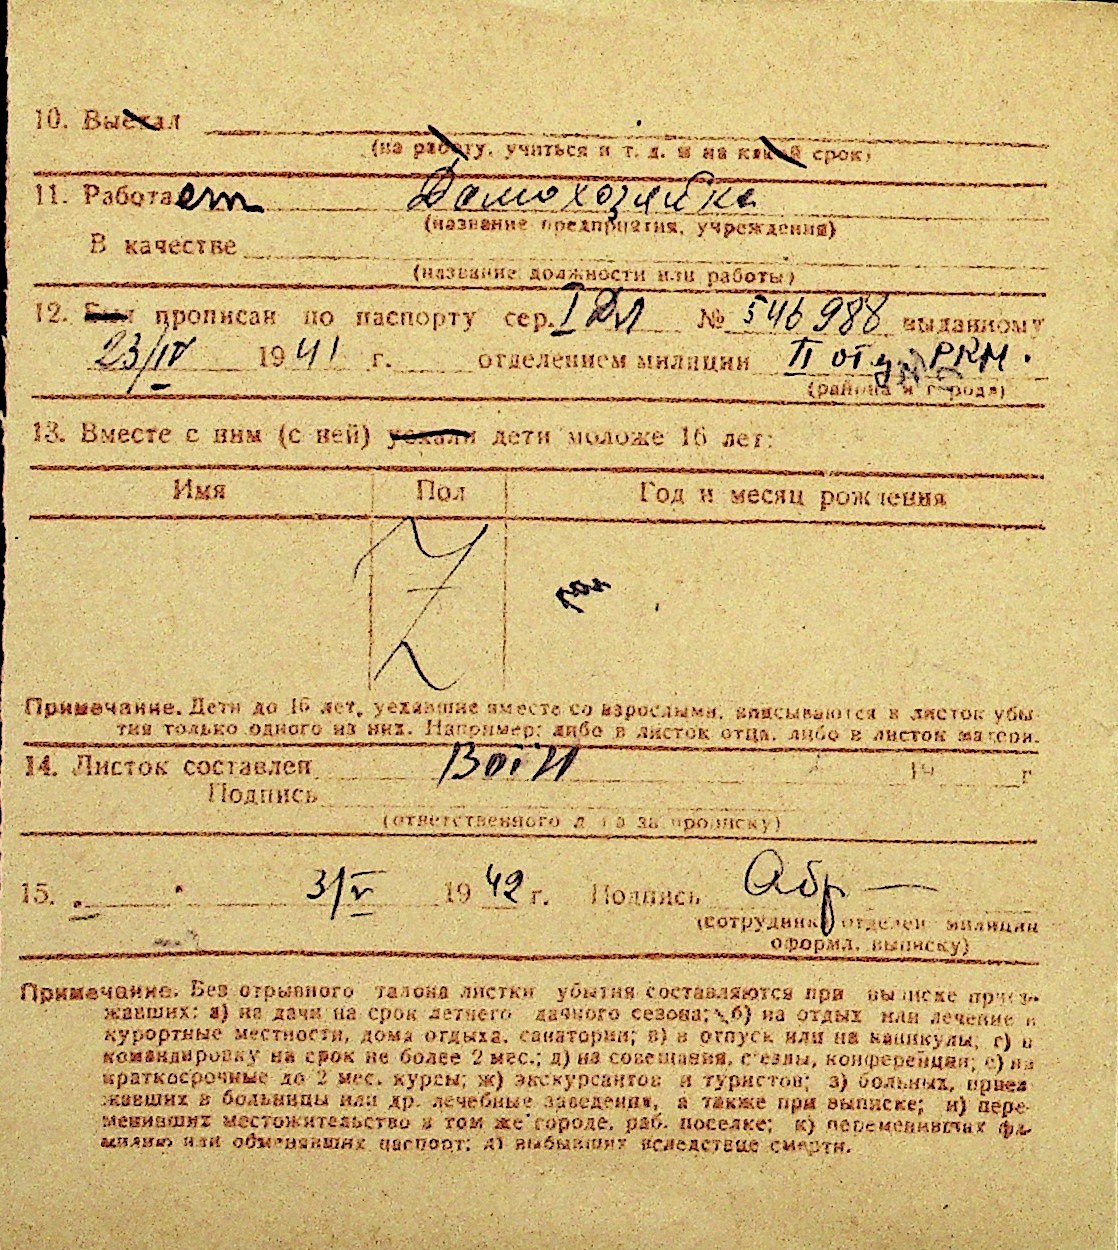 10. Выехал
(на работу, учиться и т. д. и на какой срок)
11. Работает Домохозяйка
(название предприятия, учреждения)
В качестве
(название должности или работы)
12. Был прописан по паспорту сер. I ДЛ № 546988 выданному
23/IV 1941 г. отделением милиции II отд. РКМ.
(района и города)
13. Вместе с ним (с ней) уехали дети моложе 16 лет:
Имя Пол Год и месяц рождения
Z
Примечание. Дети до 16 лет, уехавшие вместе со взрослыми, вписываются в листок убы-
тия только одного из них. Например: либо в листок отца, либо в листок матери.
14. Листок составлен 19 г.
Подпись
(ответственного лица за прописку)
15. 3/V 1942 г. Подпись Абр
(сотрудника отделен. милиции
оформл. выписку)
Примечание. Без отрывного талона листки убытия составляются при выписке приез-
жавших: а) на дачи на срок летнего дачного сезона; б) на отдых или лечение в
курортные местности, дома отдыха, санатории; в) в отпуск или на каникулы; г) в
командировку на срок не более 2 мес.; д) на совещания, с'езды, конференции; е) на
краткосрочные до 2 мес. курсы; ж) экскурсантов и туристов; з) больных, приез-
жавших в больницы или др. лечебные заведения, а также при выписке; и) пере-
менивших местожительство в том же городе, раб. поселке; к) переменивших фа-
милию или обменявших паспорт; л) выбывших вследствие смерти.